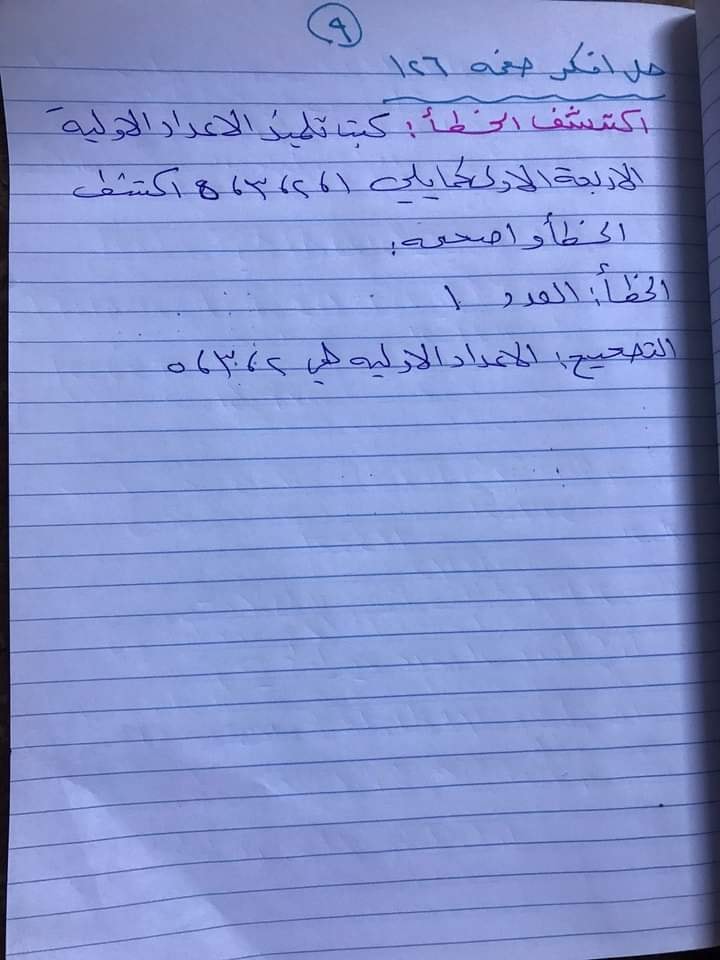 ٩
حل افكر صفحه ١٢٦
اكتشف الخطأ: كتب تلميذ الاعداد الاولية
الاربعة الاولى كما يلي ١،٢،٣،٥ اكتشف
الخطأ و اصححه:
الخطأ: العدد ١
التصحيح: الاعداد الاولية هي ٢،٣،٥